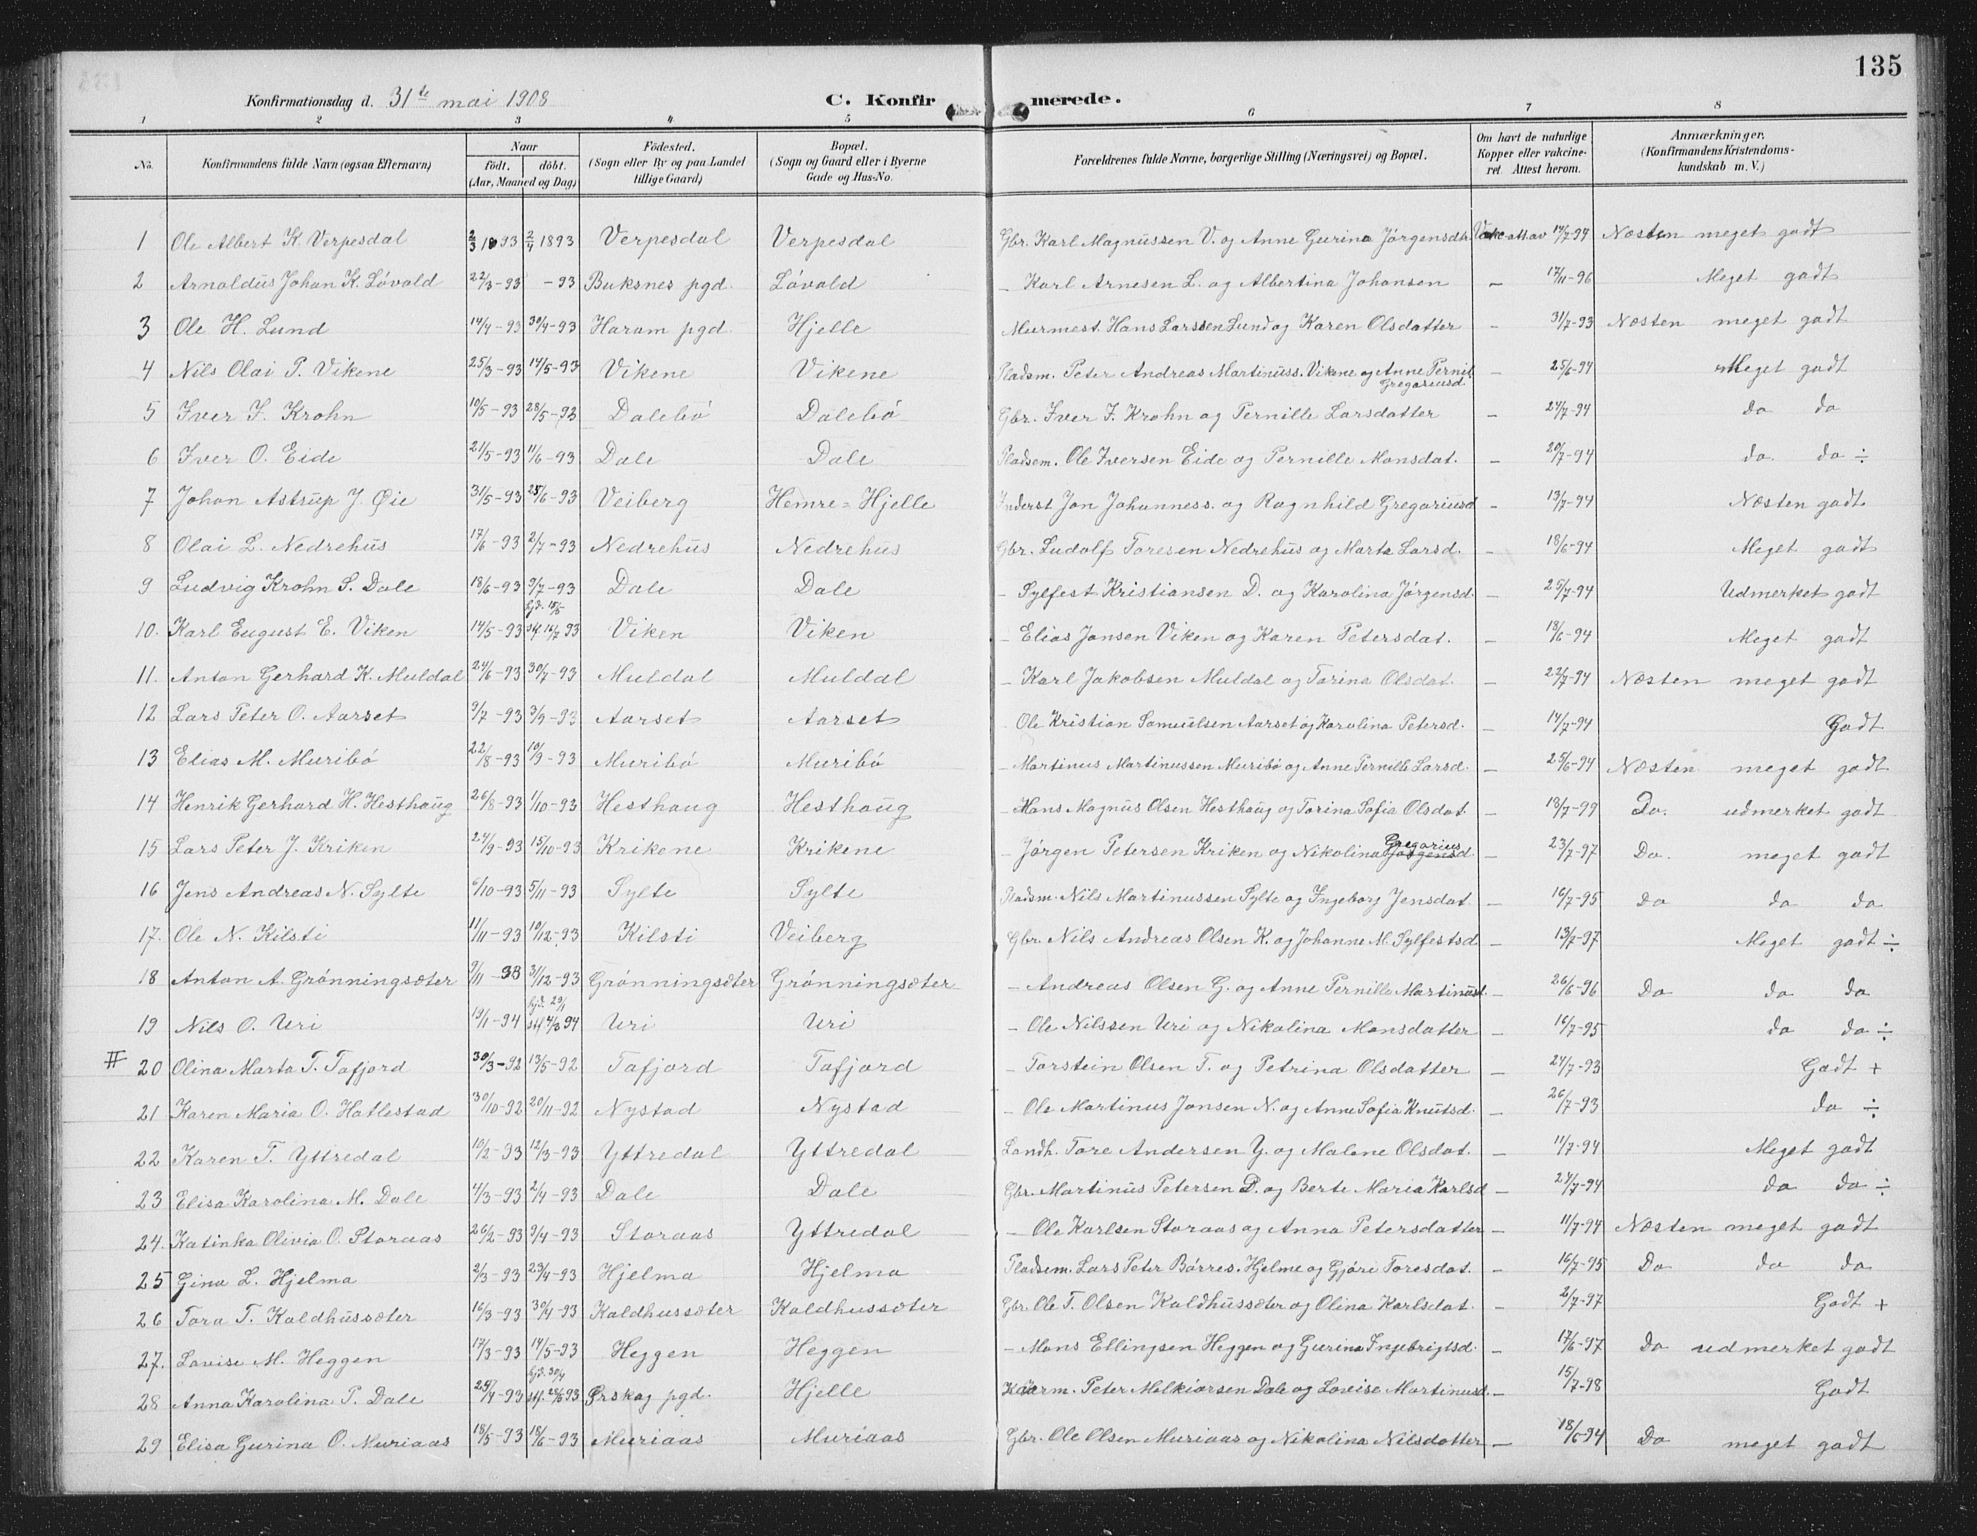 135
Konfirmationsdag d. 31te mai 1908
C. Konfirmerede.
1 2 3 4 5 6 7 8
No. Konfirmandens fulde Navn (ogsaa Efternavn) Naar født. døbt. (Aar, Maaned og Dag) Fødested. (Sogn eller By og paa Landet tillige Gaard) Bopæl. (Sogn og Gaard eller i Byerne Gade og Hus-No. Forældrenes fulde Navne, borgerlige Stilling (Næringsvei) og Bopæl. Om havt de naturlige Kopper eller vakcineret. Attest herom. Anmærkninger. (Konfirmandens Kristendomskundskab m. V.)
1 Ole Albert K. Verpesdal 2/3 1893 2/4 1893 Verpesdal Verpesdal Gbr. Karl Magnussen V. og Anne Gurina Jørgensdtr. Vakc. att. av 14/7-94 Næsten meget godt
2 Arnoldus Johan K. Løvold 22/3-93 -93 Buksnes pgd. Løvold - Karl Arnesen L. og Albertina Johansen - 17/11-96 Meget godt
3 Ole H. Lund 14/4-93 30/4-93 Haram pgd. Hjelle Murmest. Hans Larssen Lund og Karen Olsdatter - 31/7-93 Næsten meget godt
4 Nils Olai P. Vikene 25/3-93 14/5-93 Vikene Vikene Pladsm. Peter Andreas Martinuss. Vikene og Anne Pernil. Gregoriusd. - 25/6-94 Meget godt
5 Iver I. Krohn 10/5-93 28/5-93 Dalebø Dalebø Gbr. Iver I. Krohn og Pernille Larsdatter - 24/7-94 do do
6 Iver O. Eide 21/5-93 11/6-93 Dale Dale Pladsem. Ole Iversen Eide og Pernille Monsdat. - 20/7-94 do. do ÷
7 Johan Astrup J. Øie 31/5-93 25/6-93 Veiberg Hemre=Hjelle Inderst Jon Johanness. og Ragnhild Gregoriusd - 13/7-94 Næsten godt
8 Olai L. Nedrehus 17/6-93 2/7-93 Nedrehus Nedrehus Gbr. Ludolf Toresen Nedrehus og Marta Larsd. - 18/6-94 Meget godt
9 Ludvig Krohn S. Dale 18/6-93 9/7-93 Dale Dale - Sylfest Kristiansen D. og Karolina Jørgensd. - 25/7-94 Udmerket godt
10. Karl Eugust E. Viken 14/5-93 hjd. 15/5 stf. 16/7 93 Viken Viken - Elias Jonsen Viken og Karen Petersdat. - 18/6-94 Meget godt
11. Anton Gerhard K. Muldal 24/6-93 30/7-93 Muldal Muldal - Karl Jakobsen Muldal og Torina Olsdat. - 22/7-94 Næsten meget godt
12 Lars Peter O. Aarset 9/7-93 3/9-93 Aarset Aarset - Ole Kristian Samuelsen Aarset og Karolina Petersd. - 14/7-94 Godt
13 Elias M. Muribø 22/8-93 10/9-93 Muribø Muribø - Martinus Martinussen Muribø og Anne Pernille Larsd. - 25/6-94 Næsten meget godt
14 Henrik Gerhard H. Hesthaug 26/8-93 1/10-93 Hesthaug Hesthaug - Hans Magnus Olsen Hesthaug og Torina Sofia Olsdat. - 18/7-99 Do. udmerket godt
15 Lars Peter J. Kriken 24/9-93 15/10-93 Krikene Krikene - Jørgen Petersen Kriken og Nikolina Gregorius Jørgensd. - 23/7-97 Do. meget godt
16 Jens Andreas N. Sylte 6/10-93 5/11-93 Sylte Sylte Pladsm. Nils Martinussen Sylte og Ingeborg Jensdat. - 16/7-95 Do do do
17. Ole N. Kilsti 11/11-93 10/12-93 Kilsti Veiberg Gbr. Nils Andreas Olsen K. og Johanne M. Sylfestsd. - 13/7-97 Meget godt ÷
18 Anton A. Grønningsæter 9/11-93 31/12-93 Grønningsæter Grønningsæter - Andreas Olsen G. og Anne Pernille Martinusd. - 26/6-96 Do do do
19 Nils O. Uri 13/1-94 hjd. 29/1 stf. 4/3 94 Uri Uri - Ole Nilssen Uri og Nikolina Monsdatter - 16/7-95 do do ÷
# 20 Olina Marta T. Tafjord 30/3-92 13/5-92 Tafjord Tafjord - Torstein Olsen T. og Petrina Olsdatter - 24/7-93 Godt +
21 Karen Maria O. Hatlestad 30/10-92 20/11-92 Nystad Nystad - Ole Martinus Jonsen N. og Anne Sofia Knutsd. - 26/7-93 do ÷
22 Karen T. Yttredal 10/2-93 12/3-93 Yttredal Yttredal Landh. Tore Andersen Y. og Malene Olsdat. - 11/7-94 Meget godt
23 Elisa Karolina M. Dale 4/3-93 2/4-93 Dale Dale Gbr. Martinus Petersen D. og Berte Maria Karlsd - 24/7-94 do do ÷
24. Katinka Olivia O. Storaas 26/2-93 9/4-93 Storaas Yttredal - Ole Karlsen Storaas og Anna Petersdatter - 11/7-94 Næsten meget godt
25 Gina L. Hjelma 2/3-93 23/4-93 Hjelma Hjelma Pladsem. Lars Peter Børres. Hjelme og Gjøri Toresdat. - 16/7-95 Do do do
26 Tora T. Kaldhussæter 16/3-93 30/4-93 Kaldhussæter Kaldhussæter Gbr. Ole T. Olsen Kaldhussæter og Olina Karlsdat. - 2/7-97 Godt +
27. Lovise M. Heggen 17/3-93 14/5-93 Heggen Heggen - Mons Ellingsen Heggen og Gurina Ingebrigtsd. - 17/6-97 Do udmerket godt
28 Anna Karolina P. Dale 25/4-93 hjd. 30/4 stf. 25/6 93 Ørskog pgd. Hjelle Kaarm. Peter Melkiorsen Dale og Lovise Martinusd. - 15/7-98 Godt
29 Elisa Gurina O. Muriaas 18/5-93 18/6-93 Muriaas Muriaas Gbr. Ole Olsen Muriaas og Nikolina Nilsdatter - 18/6-94 Do meget godt